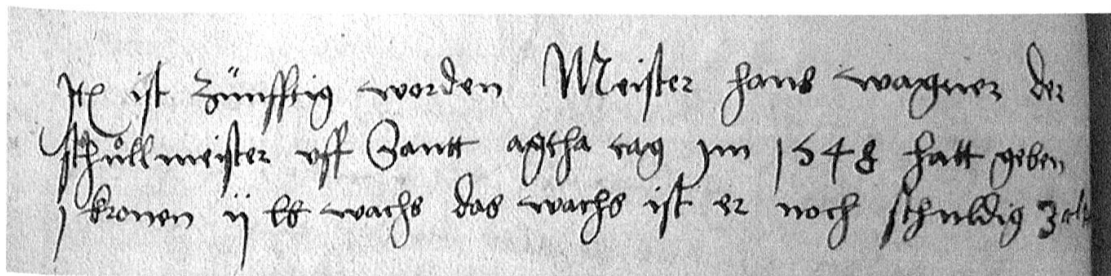 Itẽ ist zünfftig worden Meister hans wagner der
schůllmeister vff Santt agtha tag jm 1548 hatt geben
j kronen ij lb wachs das wachs ist er noch schuldig